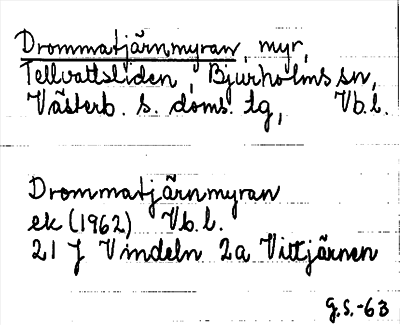 Drommatjärnmyran, myr,
Tellvattsliden, Bjurholms sn,
Västerb. s. doms. tg, Vb.l.
Drommatjärnmyran
ek (1962) Vb.l.
21 J Vindeln 2a Vittjärnen
G.S.-63